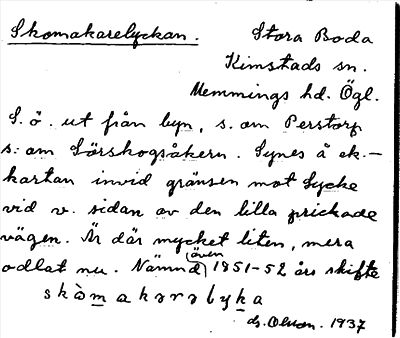 Skomakarelyckan. Stora Boda
Kimstads sn.
Memmings hd. Ögl.
S. ö. ut från byn, s. om Perstorp
s: om Sörskogsåkern. Synes å ek.-
kartan invid gränsen mot Lycke
vid v. sidan av den lilla prickade
vägen. Är där mycket liten, mera
odlat nu. Nämnd (även) 1851-52 års skifte
skòmakərəlyka
ds. Olsson. 1937